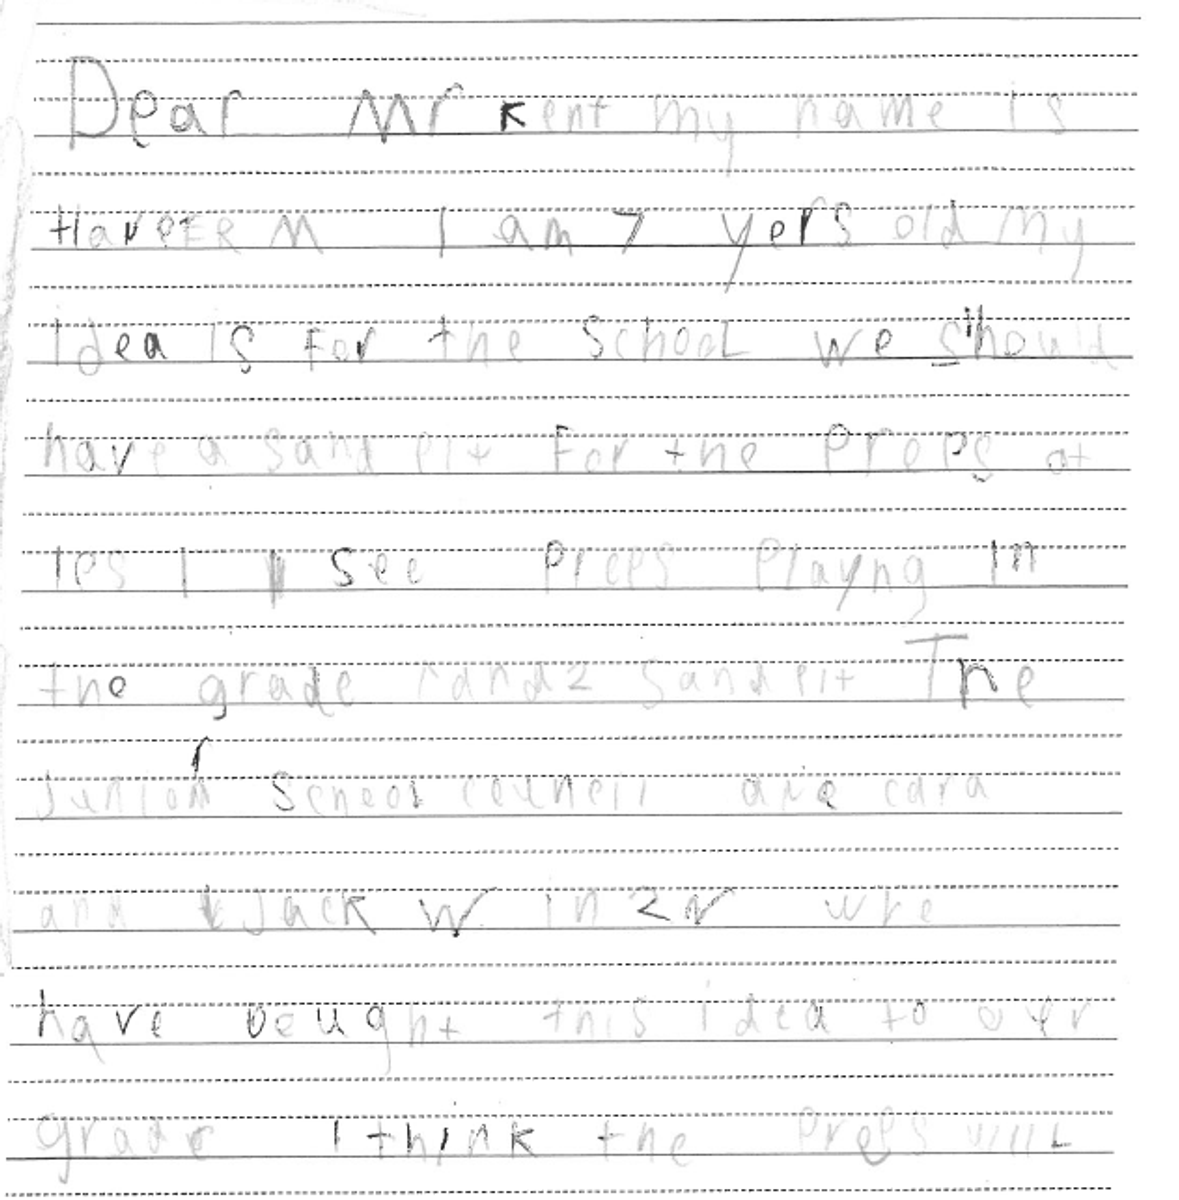 Dear Mr Kent my name is
HarpER M I am 7 yers old my
Idea is For the SchooL we should
have a sand pit For the Preps at
Tes I see Preps Playng In
the grade 1and2 sand pit The
Junior School council are cara
and Jack W in 2N wre
have bought this idea to over
grade I think the Preps willL